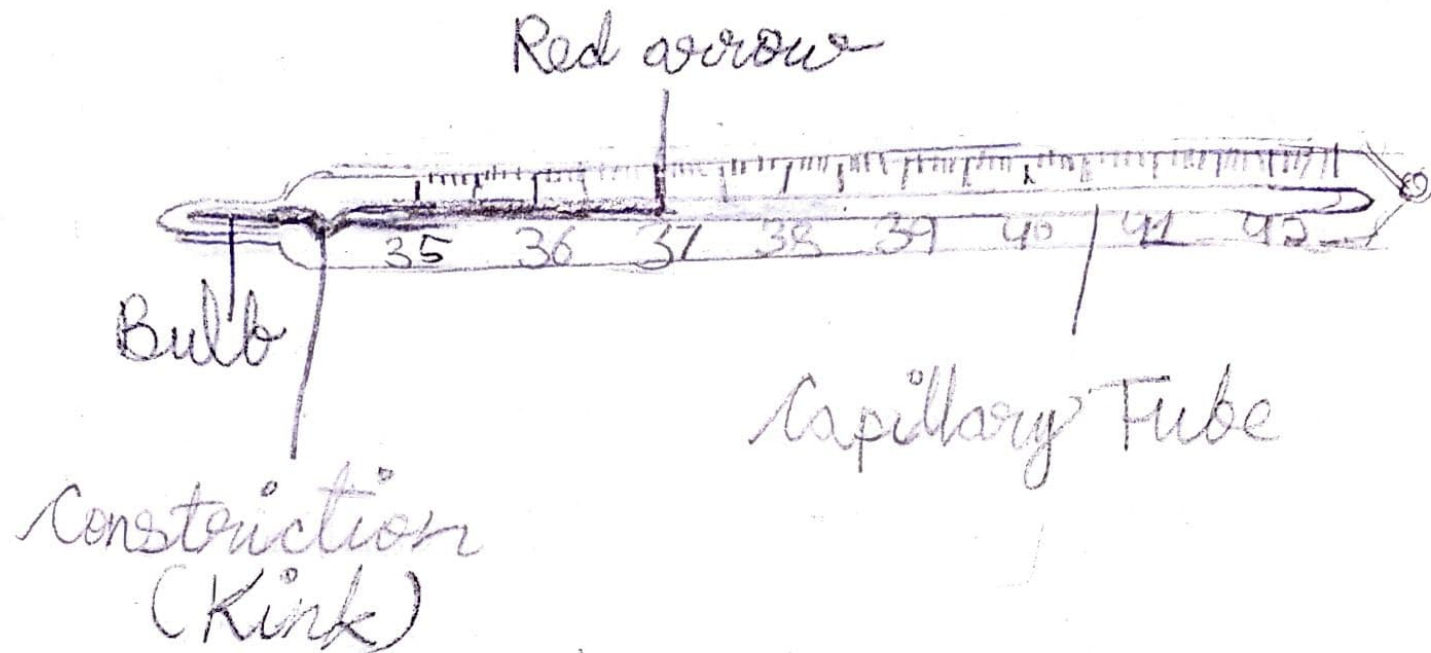 Red arrow
35 36 37 38 39 40 41 42
Bulb
Capillary Tube
Constriction
(Kink)